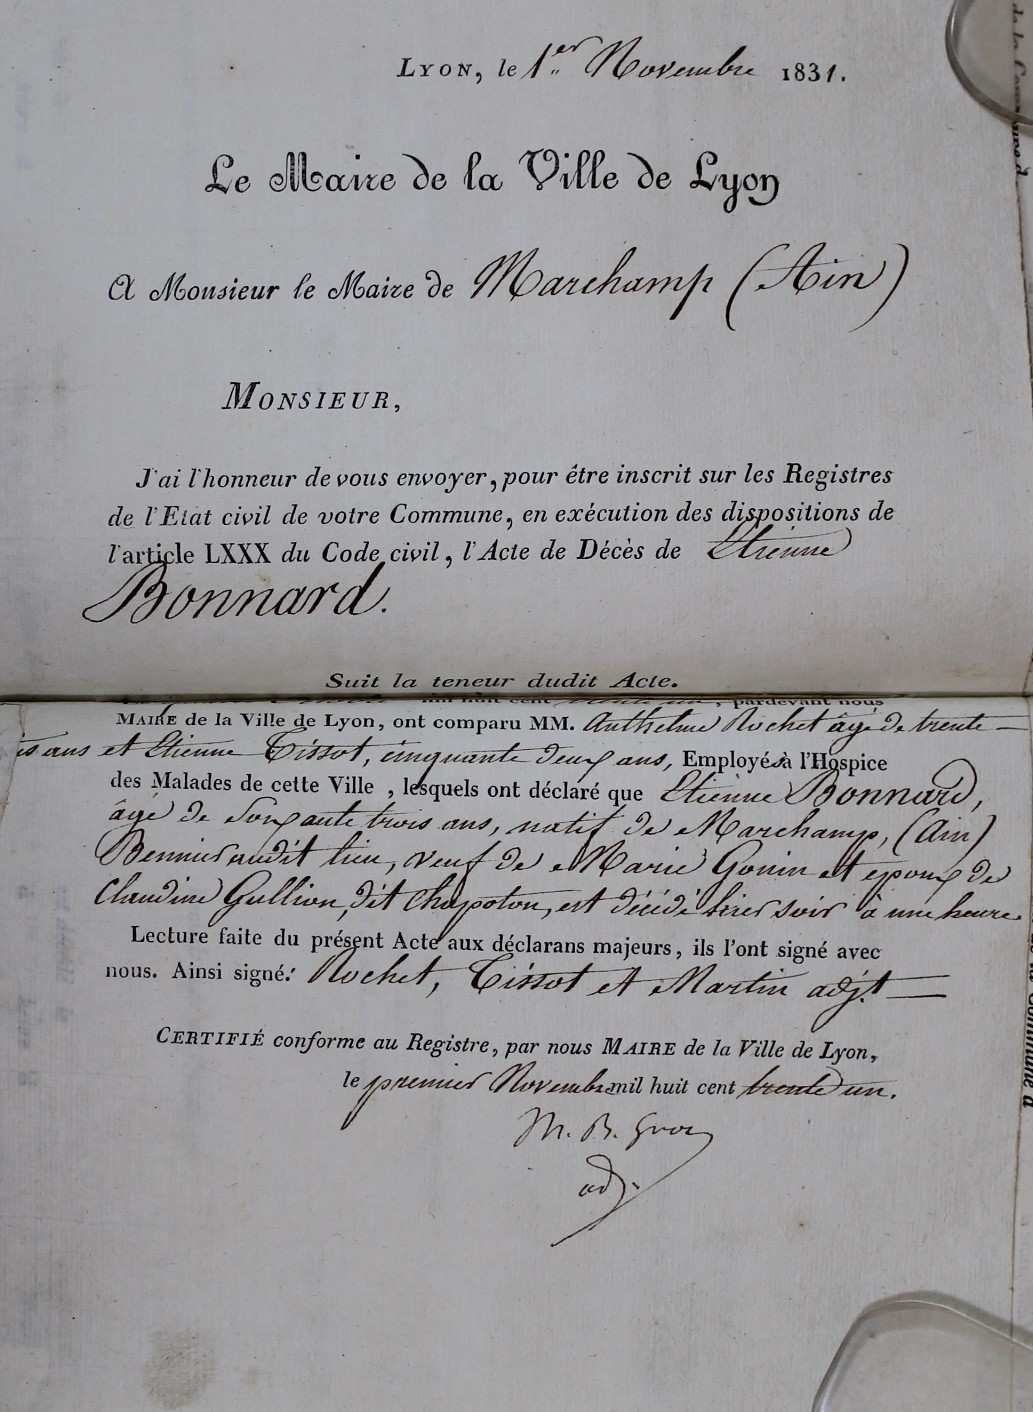 Lyon, le 1.er Novembre 1831.
Le Maire de la Ville de Lyon
A Monsieur le Maire de Marchamp (Ain)
Monsieur,
J'ai l'honneur de vous envoyer, pour être inscrit sur les Registres
de l'Etat civil de votre Commune, en exécution des dispositions de
l'article LXXX du Code civil, l'Acte de Décès de Etienne
Bonnard.
Suit la teneur dudit Acte.
mil huit cent trente un, pardevant nous
Maire de la Ville de Lyon, ont comparu MM. Anthelme Rochet âgé de trente
is ans et Etienne Tissot, cinquante deux ans, Employés à l'Hospice
des Malades de cette Ville, lesquels ont déclaré que Etienne Bonnard,
âgé de Soixante trois ans, natif de Marchamp, (Ain)
audit lieu, veuf de Marie Gonin et epoux de
Claudine Gullion, dit Chapoton, est décédé hier soir à une heure.
Lecture faite du présent Acte aux déclarans majeurs, ils l'ont signé avec
nous. Ainsi signé: Rochet, Tissot et Martin adj.t
Certifié conforme au Registre, par nous Maire de la Ville de Lyon,
le premier Novembre mil huit cent trente un.
M. B. Gros
adj.